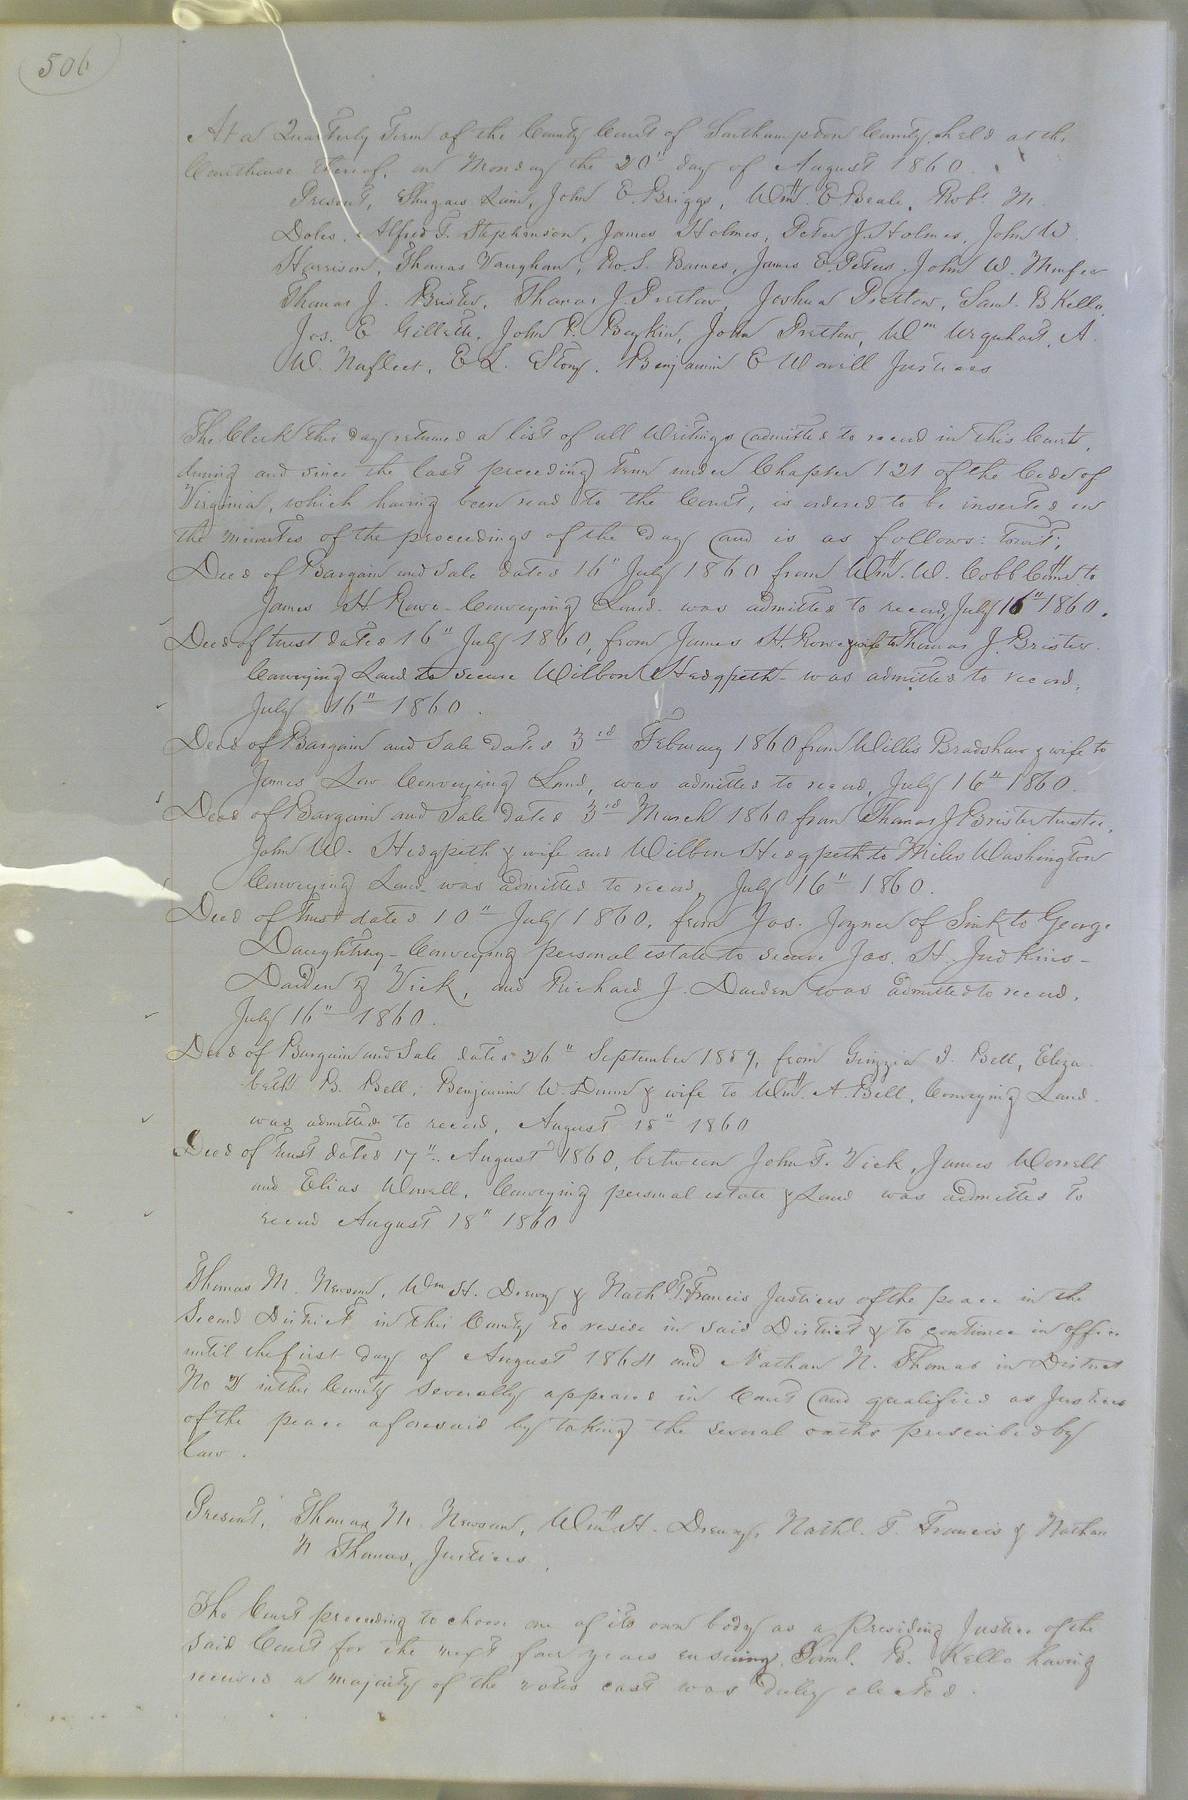 506
At a Quarterly Term of the County Court of Southampton County, held at the
Courthouse thereof, on Monday the 20" day of August 1860.
Present, John E. Briggs, Wm. E. Beale, Robt. M.
Doles, Alfred T. Stephenson, James Holmes, Peter J. Holmes, John W.
Harrison, Thomas Vaughan, Ro. S. Barnes, James E. Peters, John W.
Thomas J. Brister, Thomas J. Pretlow, Joshua Pretlow, Saml. B Kello,
Jos. E Gillette, John P. Boykin, John Pretlow, Wm Urquhart, A.
W. Nufleet, E L. Story, Benjamin E Worrell Justices
The Clerk this day returned a list of all Writings admitted to record in this Court,
during and since the last preceeding term under Chapter 121 of the Code of
Virginia, which having been read to the Court, is ordered to be inserted in
the minutes of the proceedings of the day and is as follows: towit:
Deed of Bargain and Sale dated 16" July 1860 from Wm. W. Cobb Comr. to
James H. Rowe Conveying Land was admitted to record, July 16" 1860.
Deed of trust dated 16" July 1860, from James H. Rowe & wife to Thomas J. Brister
Conveying Land to secure Wilbon Hedgpeth was admitted to record,
July 16" 1860.
Deed of Bargain and Sale dated 3rd February 1860 from Willis Bradshaw & wife to
James Low Conveying Land, was admitted to record, July 16" 1860.
Deed of Bargain and Sale dated 3rd March 1860 from Thomas J Brister trustee,
John W. Hedgpeth & wife and Wilbon Hedgpeth to Miles Washington
Conveying Land was admitted to record, July 16" 1860.
Deed of Trust dated 10" July 1860, from Jas. Joyner of Sink to George
Daughtrey Conveying personal estate to secure Jas. H. Judkins
Darden & Vick, and Richard J. Darden was admitted to record,
July 16" 1860.
Deed of Bargain and Sale dated 26" September 1859, from J. Bell, Eliza
beth B. Bell, Benjamin W. Dunn & wife to Wm. A. Bell, Conveying Land
was admitted to record, August 18" 1860
Deed of Trust dated 17" August 1860, between John T. Vick, James Worrell
and Elias Worrell, Conveying personal estate & Land was admitted to
record August 18" 1860
Thomas M. Newsom, Wm H. Drewry & Nathl T. Francis Justices of the peace in the
Second District in this County to reside in said District & to continue in office
until the first day of August 1864 and Nathan N. Thomas in District
No in this County severally appeared in Court and qualified as Justices
of the peace aforesaid by taking the several oaths prescribed by
law.
Present, Thomas M. Newsom, Wm H. Drewry, Nathl. T. Francis & Nathan
N Thomas, Justices.
The Court proceeding to choose one of its own body as a Presiding Justice of the
said Court for the next four years ensuing, Saml. B. Kello having
received a majority of the votes cast was duly elected.